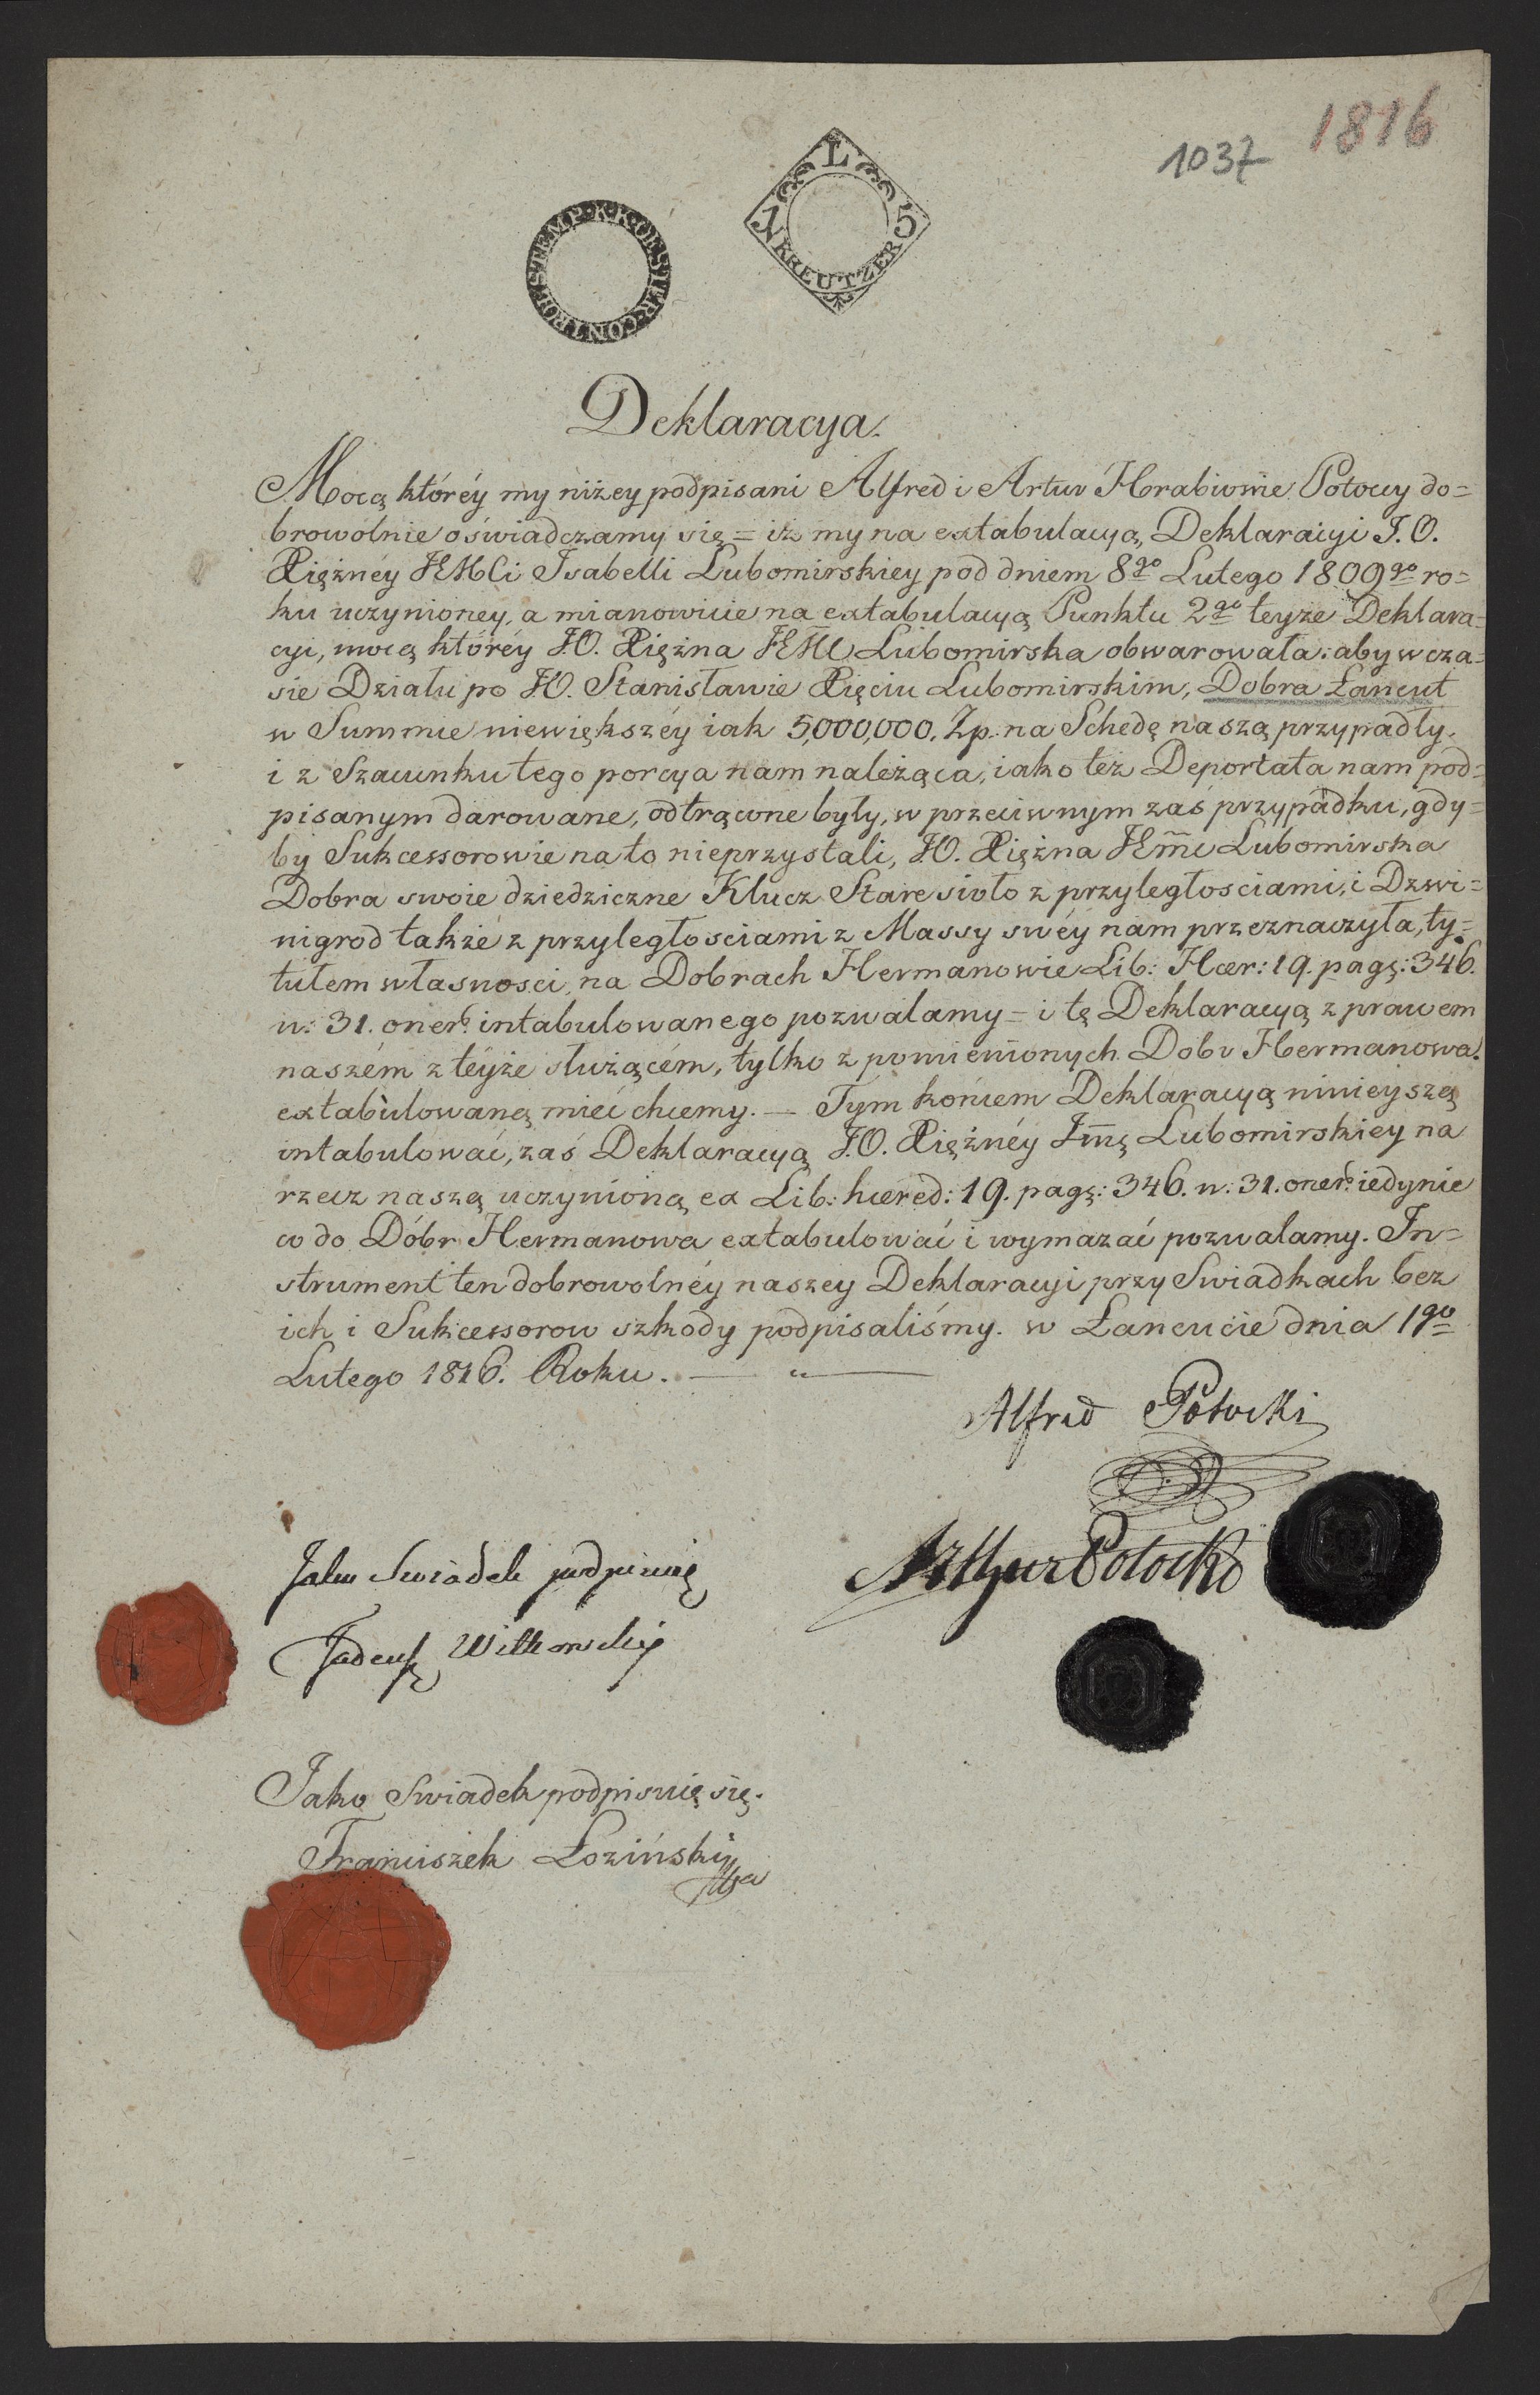 1816
1037
L
1 5
KREUTZER
K.K.OESTER.CONTROL STEMP.
Deklaracya.
Mocą któréy my niżey podpisani Alfred i Artur Hrabiowie Potoccy do=
browolnie oświadczamy się = iż my na extabulacyą, Deklaracyi J. O.
Xiężnéy JEMCi Isabelli Lubomirskiey pod dniem 8go Lutego 1809go ro=
ku uczynioney, a mianowicie na extabulacyą Punktu 2go teyże Deklara=
cyi, mocą któréy JO. Xiężna JEMC Lubomirska obwarowała: aby w cza=
sie Działu po JO. Stanisławie Xięciu Lubomirskim, Dobra Łancut
w Summie niewiększéy iak 5,000,000. Zp. na Schedę naszą przypadły,
i z Szacunku tego porcya nam należąca, iako też Deportata nam pod=
pisanym darowane, odtrącone były, w przeciwnym zaś przypadku, gdy=
by Sukcessorowie na to nieprzystali, JO. Xiężna JEmc Lubomirska
Dobra swoie dziedziczne Klucz Stare sioło z przyległosciami, i Dzwi=
nigrod także z przyległosciami z Massy swéy nam przeznaczyła, ty=
tułem własnosci, na Dobrach Hermanowie Lib: Hær: 19. pag: 346.
n: 31. oner: intabulowanego pozwalamy = i tę Deklaracyą z prawem
naszém z téyże służącém, tylko z pomienionych Dobr Hermanowa
extabulowaną mieć chcemy. — Tym końcem Deklaracyą ninieyszą
intabulować, zaś Deklaracyą J.O. Xiężnéy Jmę Lubomirskiey na
rzecz naszą uczynioną ex Lib: hæred: 19. pag: 346. n: 31. oner: iedynie
co do Dóbr Hermanowa extabulować i wymazać pozwalamy. In=
strument ten dobrowolnéy naszey Deklaracyi przy Swiadkach bez
ich i Sukcessorow szkody podpisaliśmy. w Łancucie dnia 1go
Lutego 1816. Roku. — " —
Alfred Potocki
Arthur Potocki
Jako Swiadek podpisuię
Tadeusz Witkowski
Jako Swiadek podpisuię się.
Franciszek Łoziński